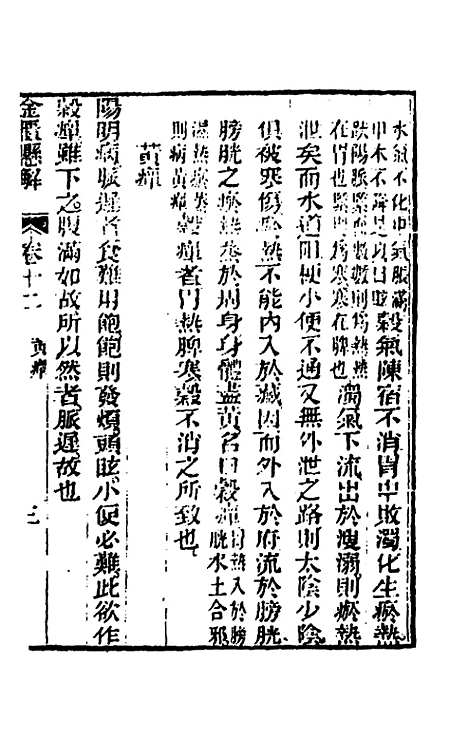 水氣不化中氣脹滿
甲木不降是以目眩
穀氣陳宿不消胃中敗濁化生瘀熱
趺陽脈緊而數數則為熱熱
在胃也緊則為寒寒在脾也
濁氣下流出於溲溺則瘀熱
泄矣而水道阻梗小便不通又無外泄之路則太陰少陰
俱被寒傷瘀熱不能內入於藏因而外入於府流於膀胱
膀胱之瘀熱蒸於周身身體盡黃名曰穀疸
胃熱入於膀
胱水土合邪
濕熱瘀蒸
則病黃疸
穀疸者胃熱脾寒穀不消之所致也
黃疸
陽明病脈遲者食難用飽飽則發煩頭眩小便必難此欲作
穀疸雖下之腹滿如故所以然者脈遲故也
金匱懸解 卷十二 黃疸 三